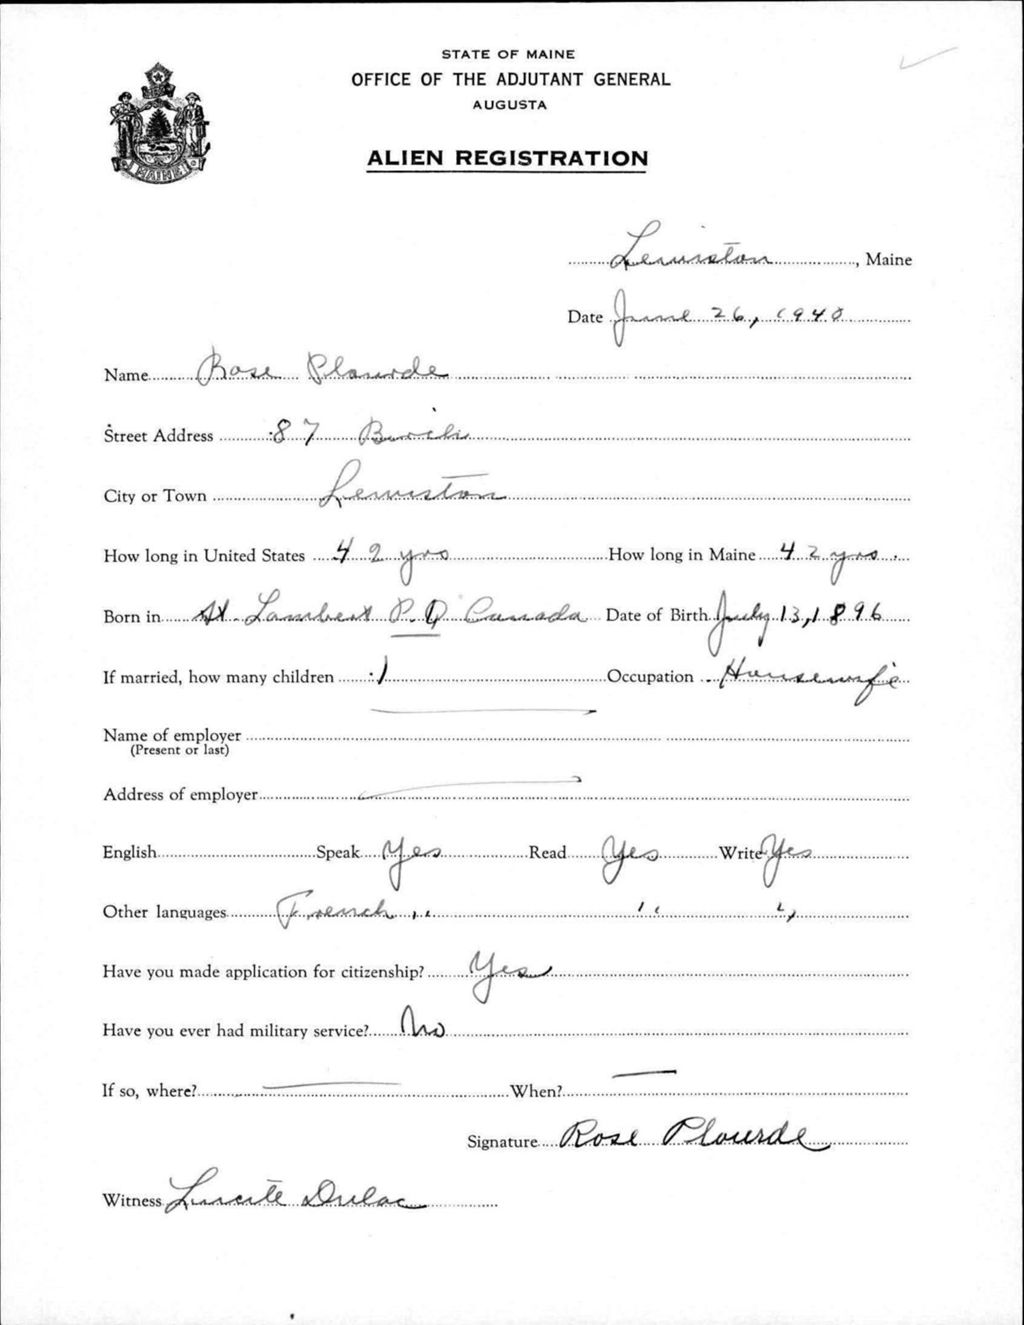 STATE OF MAINE
OFFICE OF THE ADJUTANT GENERAL
AUGUSTA
ALIEN REGISTRATION
MAINE
Lewiston, Maine
Date June 26, 1940
Name Rose Plourde
Street Address 87 Birch
City or Town Lewiston
How long in United States 42 yrs How long in Maine 42 yrs
Born in St. Lambert P.Q Canada Date of Birth July 13, 1896
If married, how many children 1 Occupation Housewife
Name of employer
(Present or last)
Address of employer
English Speak Yes Read Yes Write Yes
Other languages French " " "
Have you made application for citizenship? Yes
Have you ever had military service? No
If so, where? — When? —
Signature Rose Plourde
Witness Lucite Dulac